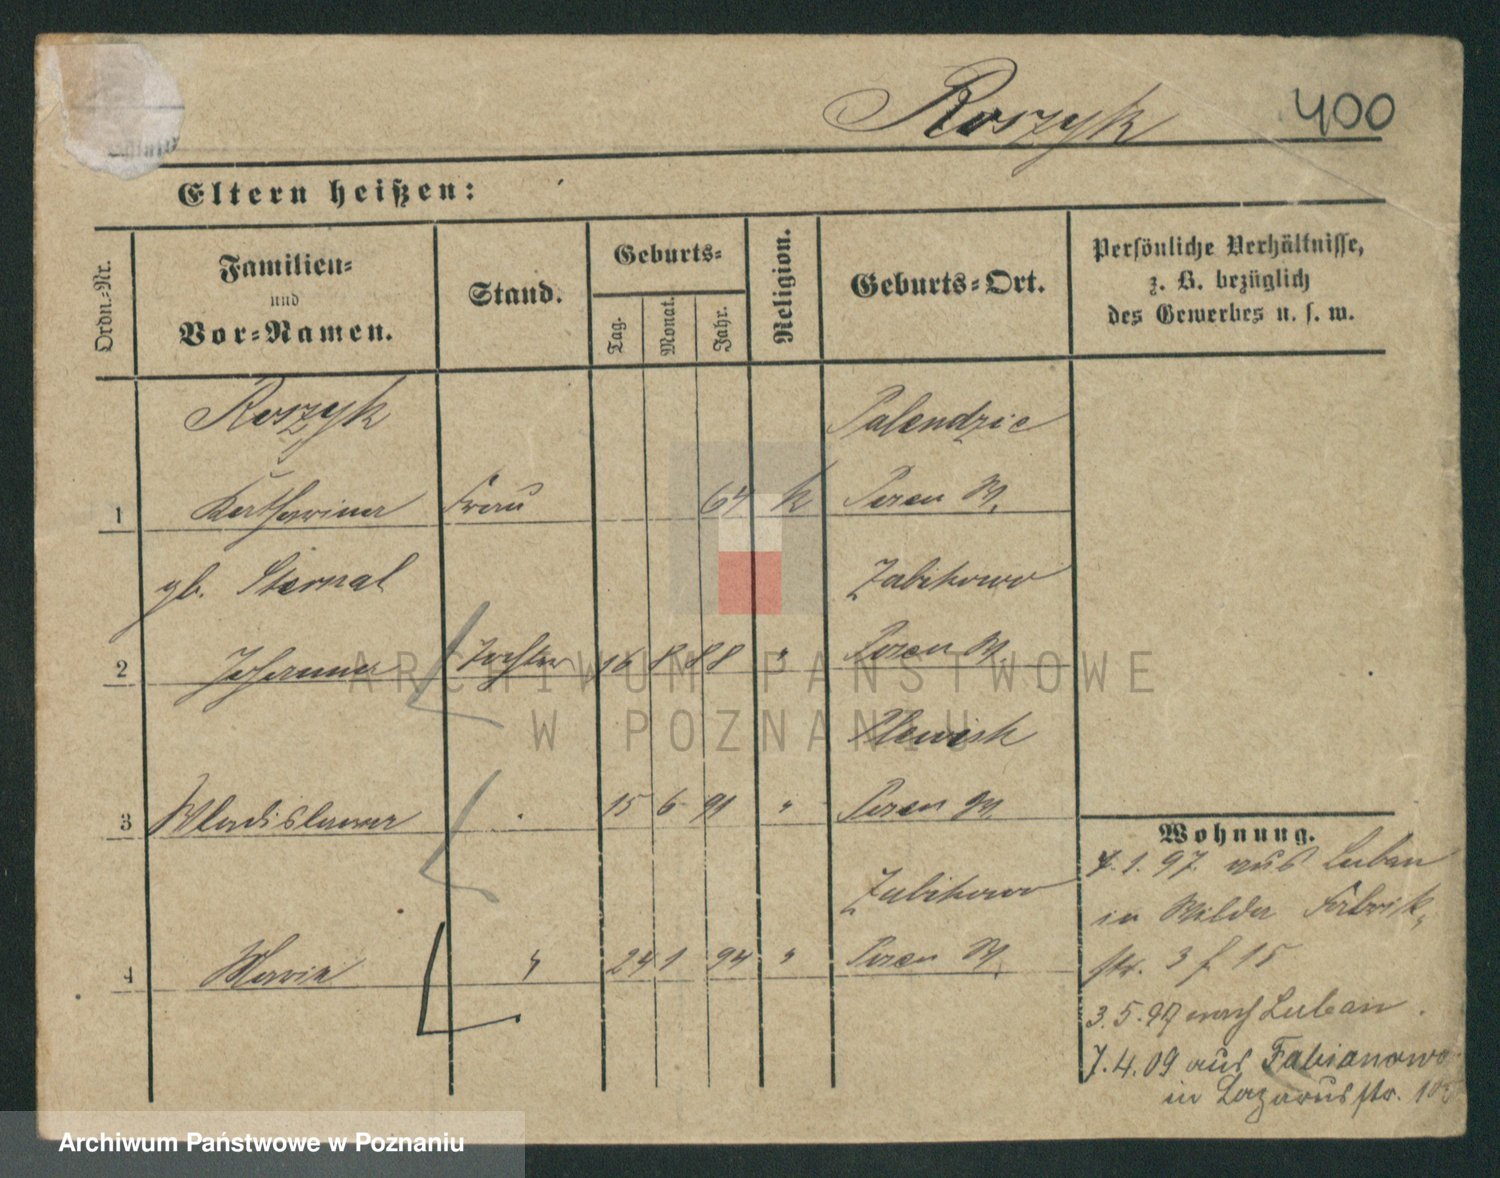 Roszyk 400
Eltern heißen:
Ordn.-Nr.
Familien-
und
Vor-Namen.
Stand.
Geburts-
Tag.
Monat.
Jahr.
Religion.
Geburts-Ort.
Persönliche Verhältnisse,
z. B. bezüglich
des Gewerbes u. s. w.
Roszyk Palendzie
1 Katharina Frau 64 k Posen W.
gb. Sternal Zabikowo
2 Johanna Tochter 16 8 88 " Posen W.
Plewisk
3 Wladislawa 15 6 91 " Posen W.
Zabikowo
4 Maria " 24 1 94 " Posen W.
Wohnung.
4.1.97. aus Luban
in Wilda Fabrik-
str. 3 f 15
3.5.97 nach Luban.
7.4.09 aus Fabianowo
in Lazarusstr.
ARCHIWUM PAŃSTWOWE
W POZNANIU
Archiwum Państwowe w Poznaniu